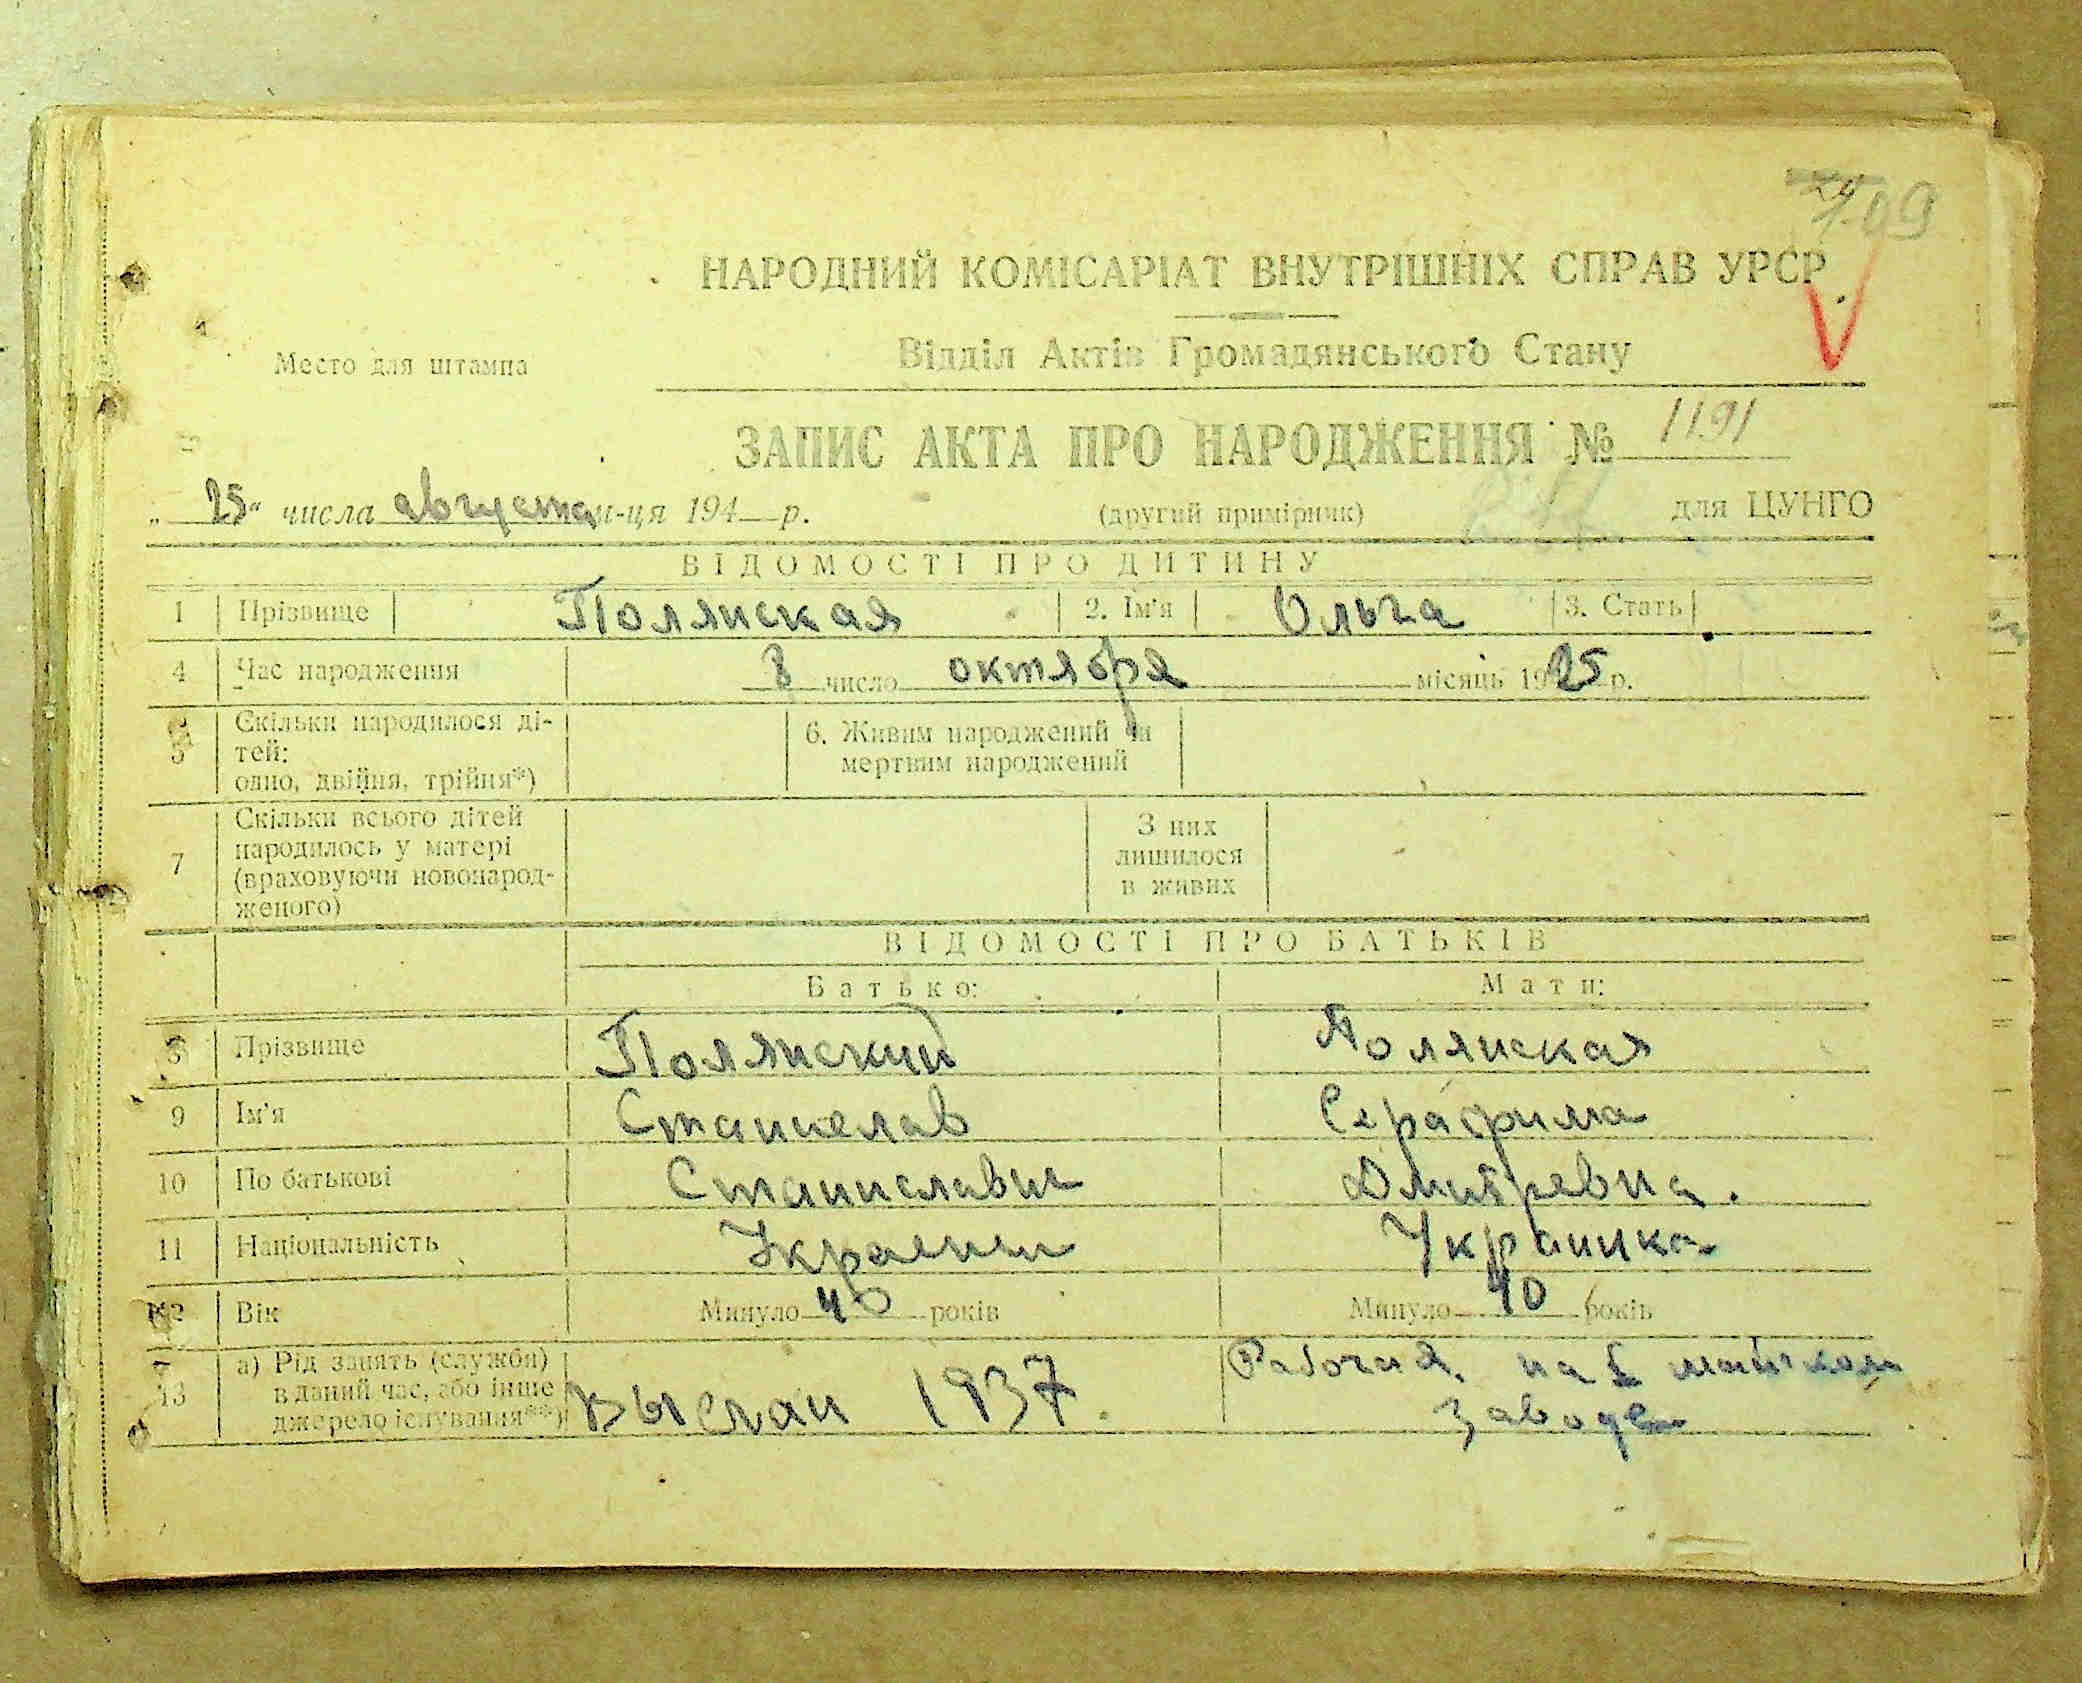 709
НАРОДНИЙ КОМІСАРІАТ ВНУТРІШНІХ СПРАВ УРСР
Место для штампа
Відділ Актів Громадянського Стану
ЗАПИС АКТА ПРО НАРОДЖЕННЯ № 1191
„ 25 " числа августа м-ця 194 р. (другий примірник) для ЦУНГО
ВІДОМОСТІ ПРО ДИТИНУ
1 Прізвище Полянская 2. Ім'я Ольга 3. Стать
4 Час народження 8 число октября місяць 1925 р.
5 Скільки народилося ді-
тей:
одно, двійня, трійня*)
6. Живим народжений чи
мертвим народжений
7 Скільки всього дітей
народилось у матері
(враховуючи новонарод-
женого)
З них
лишилося
в живих
ВІДОМОСТІ ПРО БАТЬКІВ
Батько: Мати:
8 Прізвище Полянский Полянская
9 Ім'я Станислав Серафима
10 По батькові Станиславич Дмитревна.
11 Національність Украинец Украинка
12 Вік Минуло 40 років Минуло 40 років
13 а) Рід занять (служби)
в даний час, або інше
джерело існування**)
Выслан 1937.
Рабочая на
заводе